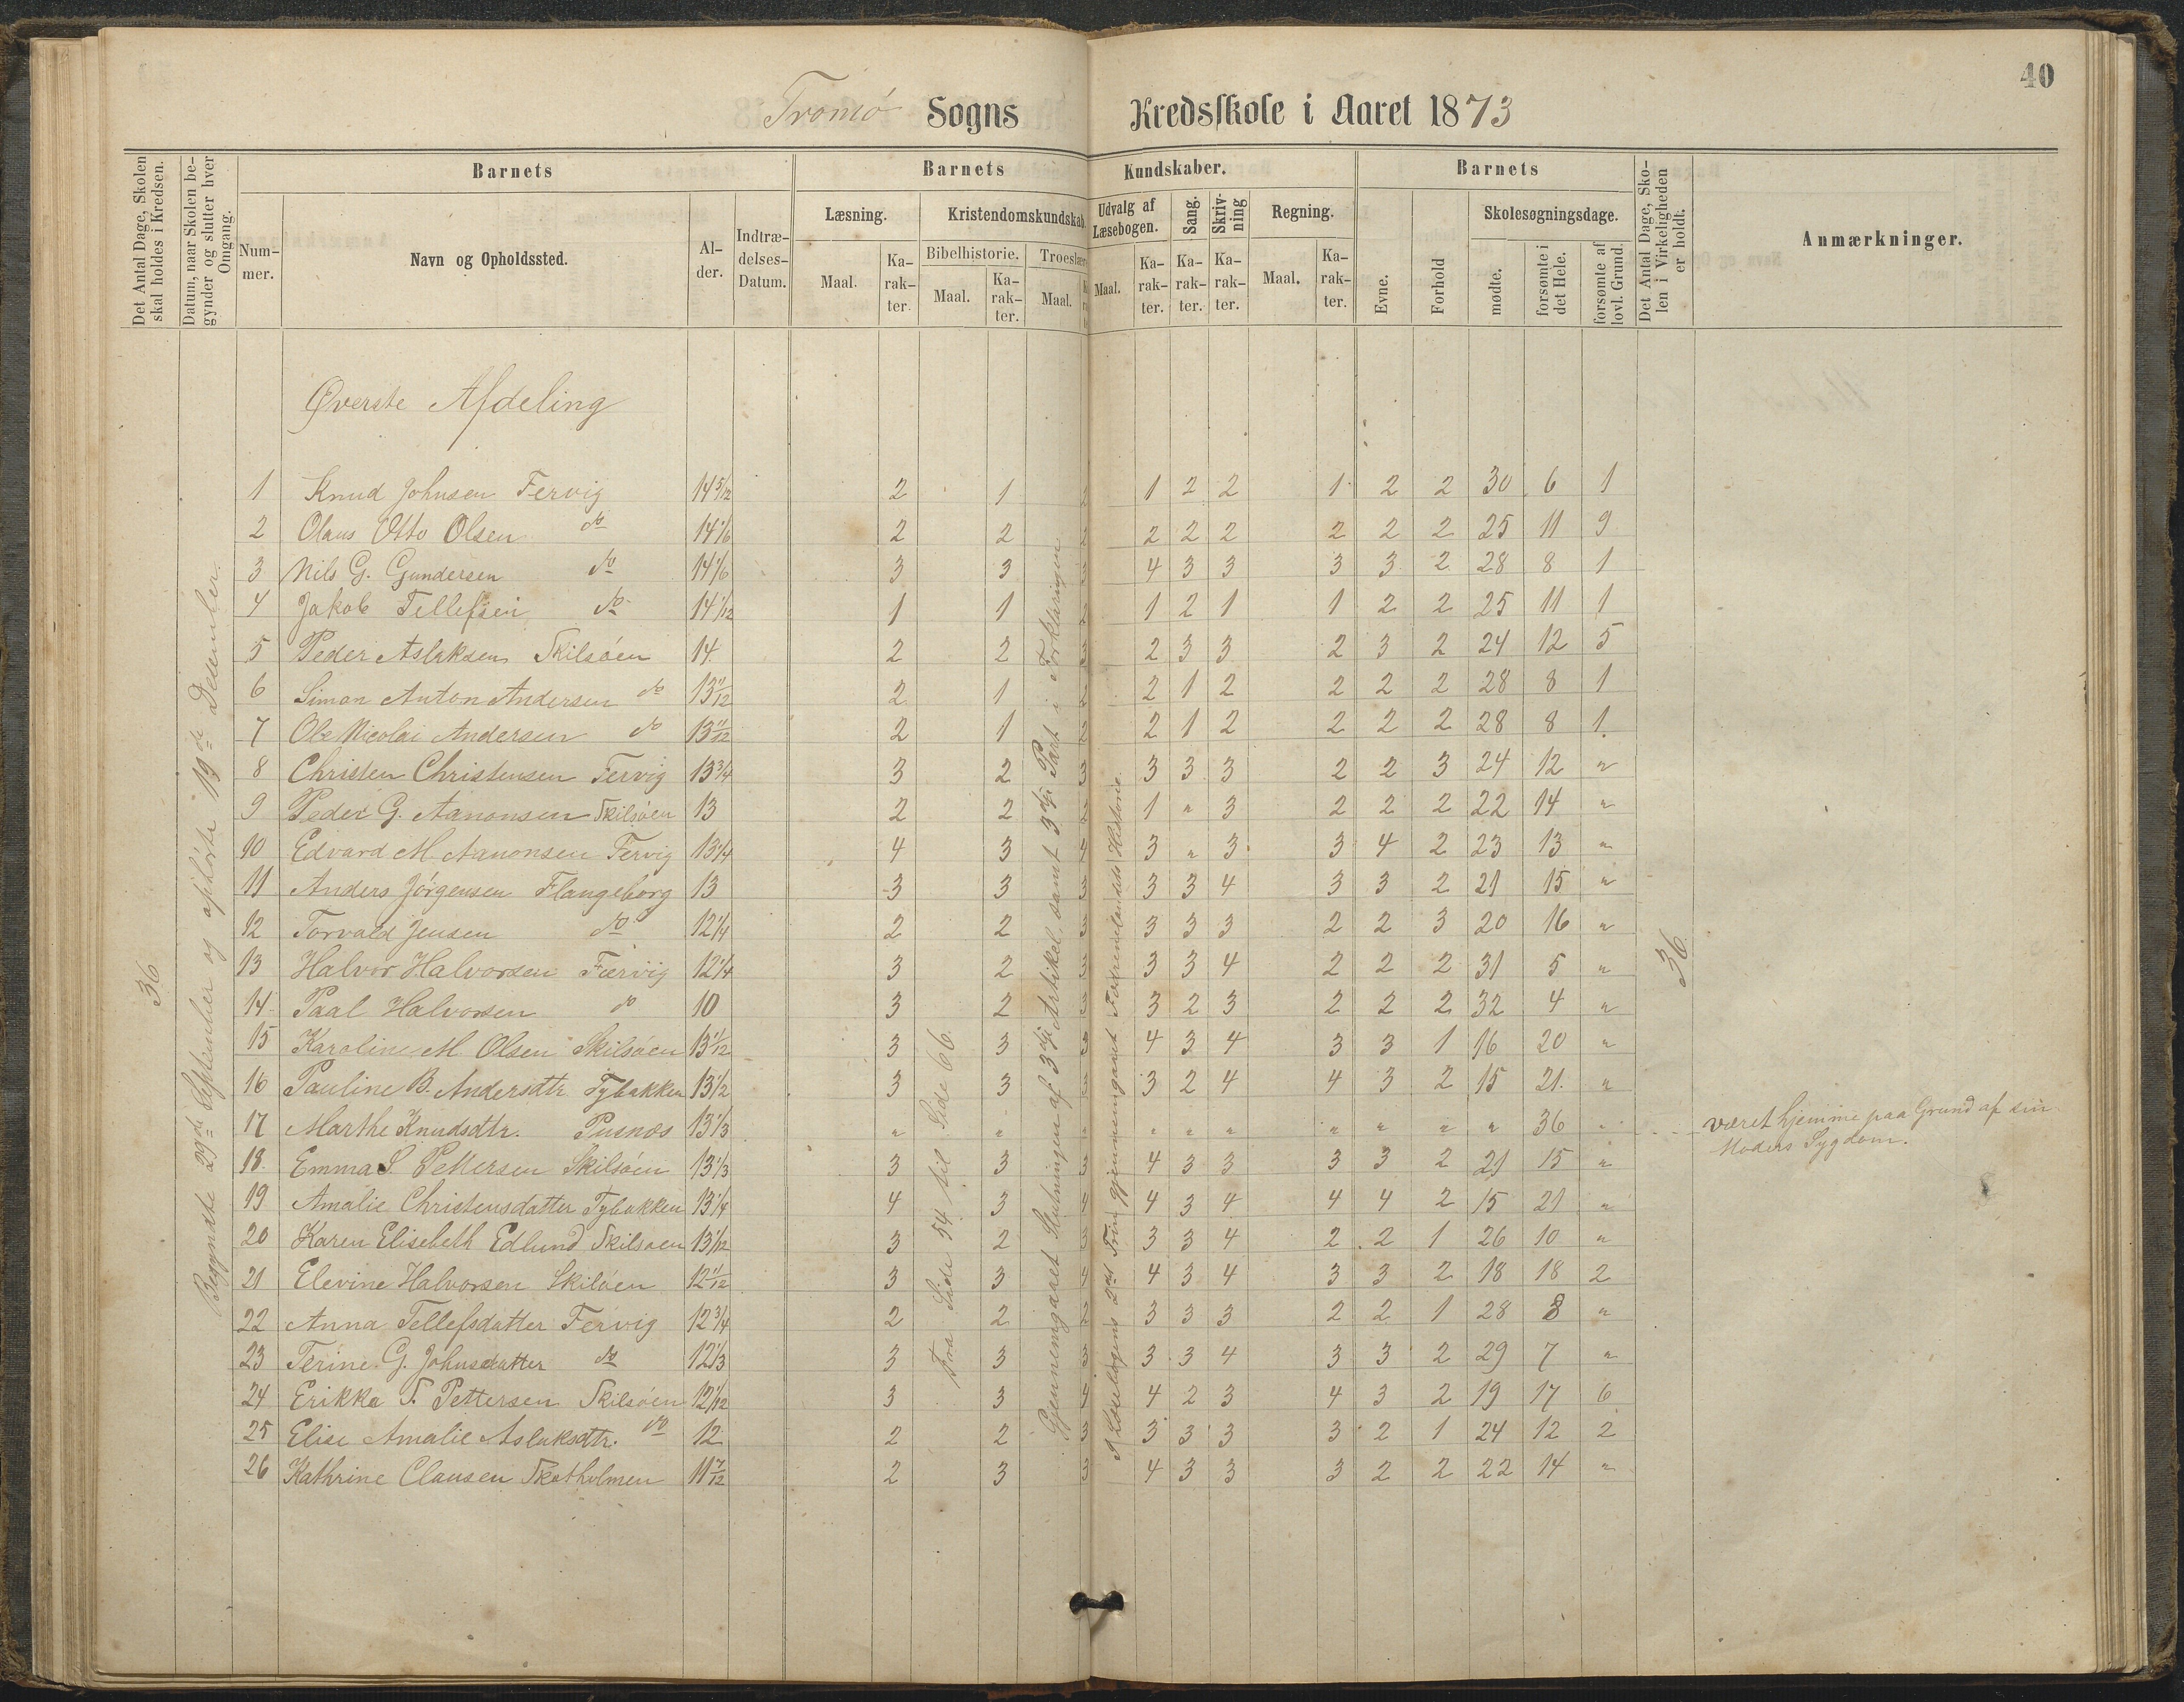 40
Tromø Sogns Kredsskole i Aaret 1873
Det Antal Dage, Skolen skal holdes i Kredsen.
Datum, naar Skolen begynder og slutter hver Omgang.
Barnets
Barnets Kundskaber.
Barnets
Det Antal Dage, Skolen i Virkeligheden er holdt.
Anmærkninger.
Nummer.
Navn og Opholdssted.
Alder.
Indtrædelses-Datum.
Læsning.
Kristendomskundskab.
Udvalg af Læsebogen.
Sang.
Skrivning
Regning.
Evne.
Forhold
Skolesøgningsdage.
Bibelhistorie.
Maal.
Karakter.
Maal.
Karakter.
Maal.
Maal.
Karakter.
Karakter.
Karakter.
Maal.
Karakter.
mødte.
forsømte i det Hele.
forsømte af lovl. Grund.
Øverste Afdeling
36
Begyndte 29de September og ophørte 19de Desember.
Fra Side 54 til Side 66.
Gjennemgaaet Slutningen af 3die Artikel, samt 3die Part i Forklaringen
I Læsebogens 2det Trin gjennemgaaet Fædrenelandets Historie.
36
1 Knud Johnsen Fervig 14 5/12 2 1 2 1 2 2 1 2 2 30 6 1
2 Olaus Otto Olsen do 14 1/6 2 2 2 2 2 2 2 2 2 25 11 9
3 Nils G. Gundersen do 14 1/6 3 3 3 4 3 3 3 3 2 28 8 1
4 Jakob Tellefsen do 14 1/12 1 1 2 1 2 1 1 2 2 25 11 1
5 Peder Aslaksen Skilsöen 14 2 2 3 2 3 3 2 3 2 24 12 5
6 Simon Anton Andersen do 13 11/12 2 1 2 2 1 2 2 2 2 28 8 1
7 Ole Nicolai Andersen do 13 11/12 2 1 2 2 1 2 2 2 2 28 8 1
8 Christen Christensen Fervig 13 3/4 3 2 3 3 3 3 2 2 3 24 12 "
9 Peder G. Aanonsen Skilsöen 13 2 2 2 1 " 3 2 2 2 22 14 "
10 Edvard M. Aanonsen Fervig 13 1/4 4 3 4 3 " 3 3 4 2 23 13 "
11 Anders Jörgensen Flangeborg 13 3 3 3 3 3 4 3 3 2 21 15 "
12 Torvald Jensen do 12 1/4 2 2 3 3 3 3 2 2 3 20 16 "
13 Halvor Halvorsen Færvig 12 1/4 3 2 3 3 3 4 2 2 2 31 5 "
14 Paal Halvorsen do 10 3 2 3 3 2 3 2 2 2 32 4 "
15 Karoline M. Olsen Skilsöen 13 1/12 3 3 3 4 3 4 3 3 1 16 20 "
16 Pauline B. Andersdtr Tybakken 13 1/2 3 3 3 3 2 4 4 3 2 15 21 "
17 Marthe Knudsdtr. Pusnæs 13 1/3 " " " " " " " " " " 36 " været hjemme paa Grund af sin
Moders Sygdom.
18 Emma S Pettersen Skilsöen 13 1/3 3 3 3 4 3 3 3 3 2 21 15 "
19 Amalie Christensdatter Tybakken 13 1/4 4 3 4 4 3 4 4 4 2 15 21 "
20 Karen Elisebeth Edlund Skilsöen 13 1/12 3 2 3 3 3 4 2 2 1 26 10 "
21 Elevine Halvorsen Skilöen 12 11/12 3 3 4 4 3 4 3 3 2 18 18 2
22 Anna Tellefsdatter Fervig 12 3/4 2 2 2 3 3 3 2 2 1 28 8 "
23 Terine G. Johnsdatter do 12 1/3 3 3 3 3 3 4 3 3 2 29 7 "
24 Erikka S. Pettersen Skilsöen 12 1/12 3 3 4 4 2 3 4 3 2 19 17 6
25 Elise Amalie Aslaksdtr. do 12 2 2 3 3 3 3 3 2 1 24 12 2
26 Kathrine Clausen Skotholmen 11 7/12 2 3 3 4 3 3 3 2 2 22 14 "